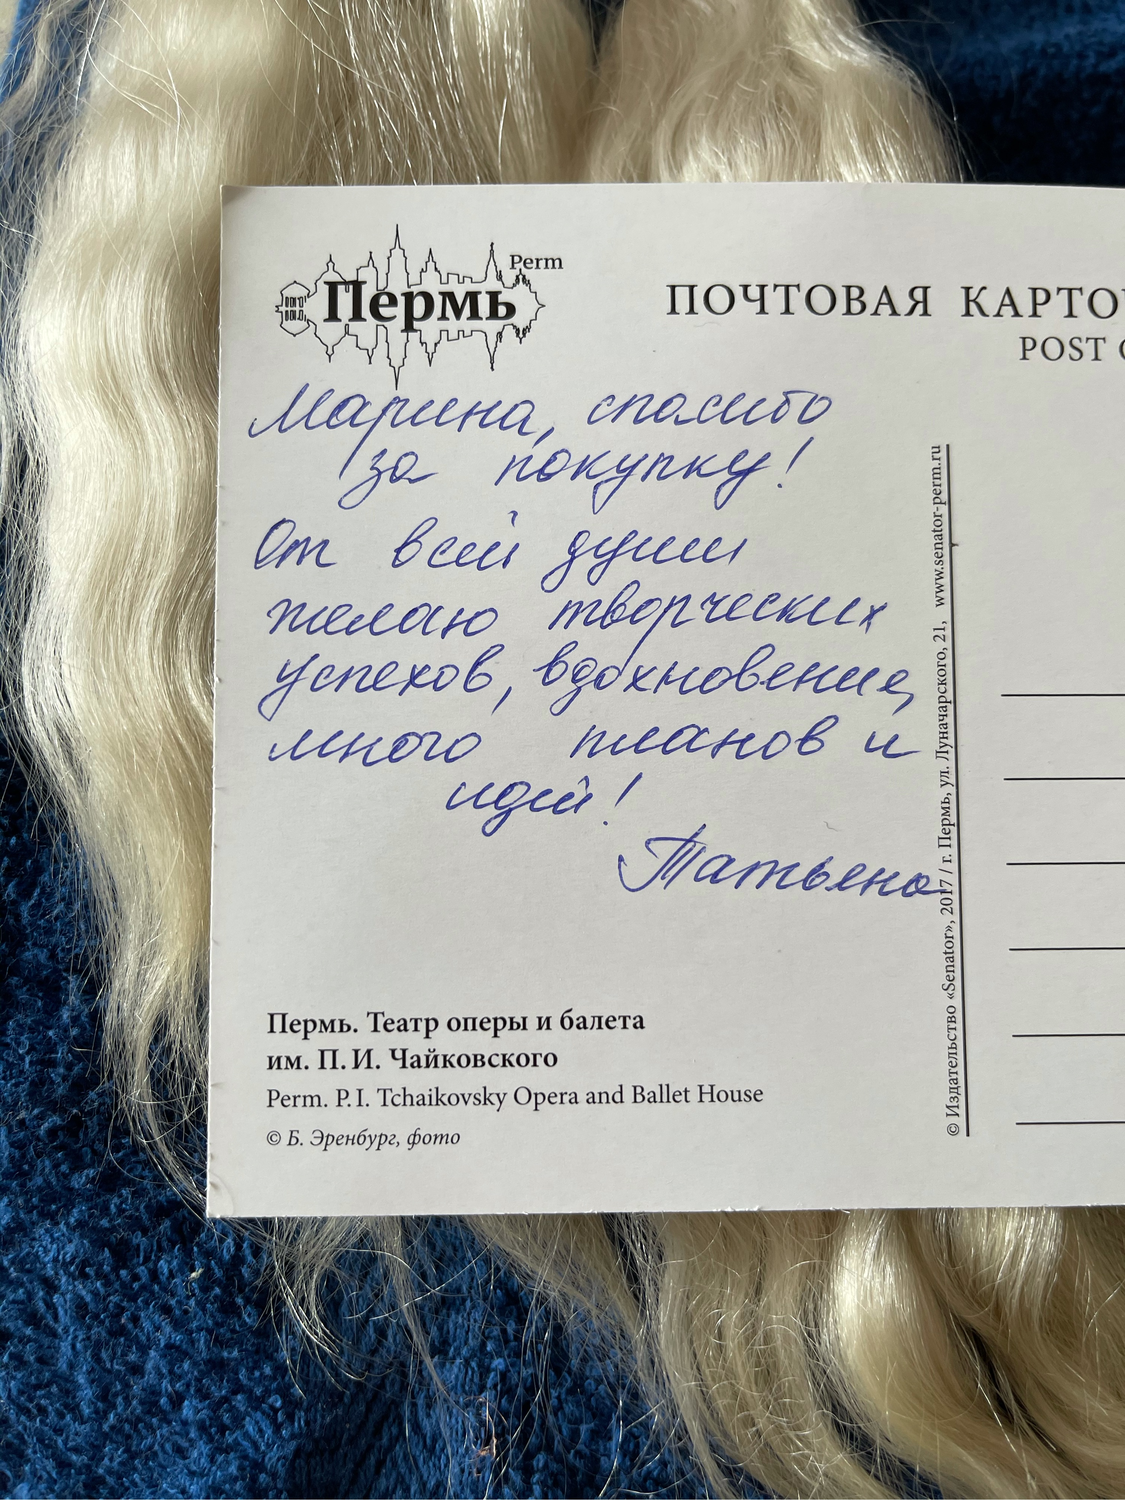 Perm
Пермь
ПОЧТОВАЯ КАРТО
POST
Марина, спасибо
за покупку!
От всей души
желаю творческих
успехов, вдохновения,
много планов и
идей!
Татьяна
© Издательство «Senator», 2017 / г. Пермь, ул. Луначарского, 21, www.senator-perm.ru
Пермь. Театр оперы и балета
им. П. И. Чайковского
Perm. P. I. Tchaikovsky Opera and Ballet House
© Б. Эренбург, фото